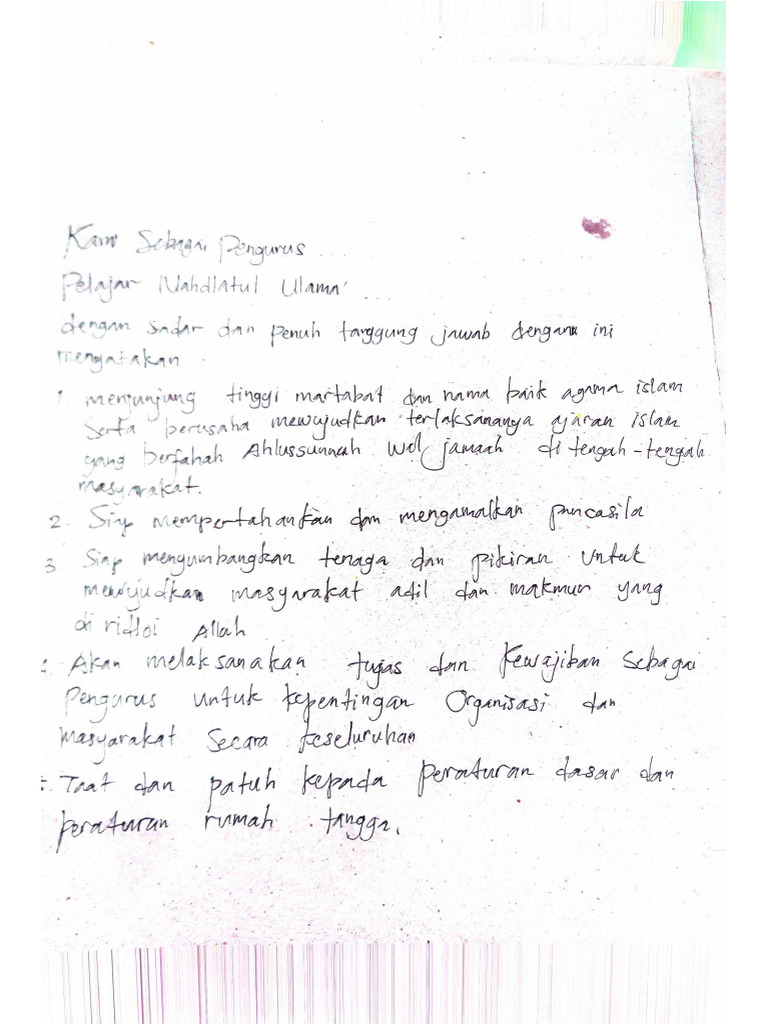 Kami Sebagai Pengurus ...
Pelajar Nahdlatul Ulama' ...
dengan sadar dan penuh tanggung jawab dengan ini
mengatakan.
1. menjunjung tinggi martabat dan nama baik agama islam
Serta berusaha mewujudkan terlaksananya ajaran islam
yang berfahah Ahlussunnah Wal jamaah di tengah-tengah
masyarakat.
2. Siap mempertahankan dan mengamalkan pancasila
3 Siap mengumbangkan tenaga dan pikiran untuk
mewujudkan masyarakat adil dan makmur yang
di ridloi Allah
4. Akan melaksanakan tugas dan Kewajiban Sebagai
Pengurus untuk kepentingan Organisasi dan
masyarakat Secara keseluruhan
5. Taat dan patuh kepada peraturan dasar dan
peraturan rumah tangga.